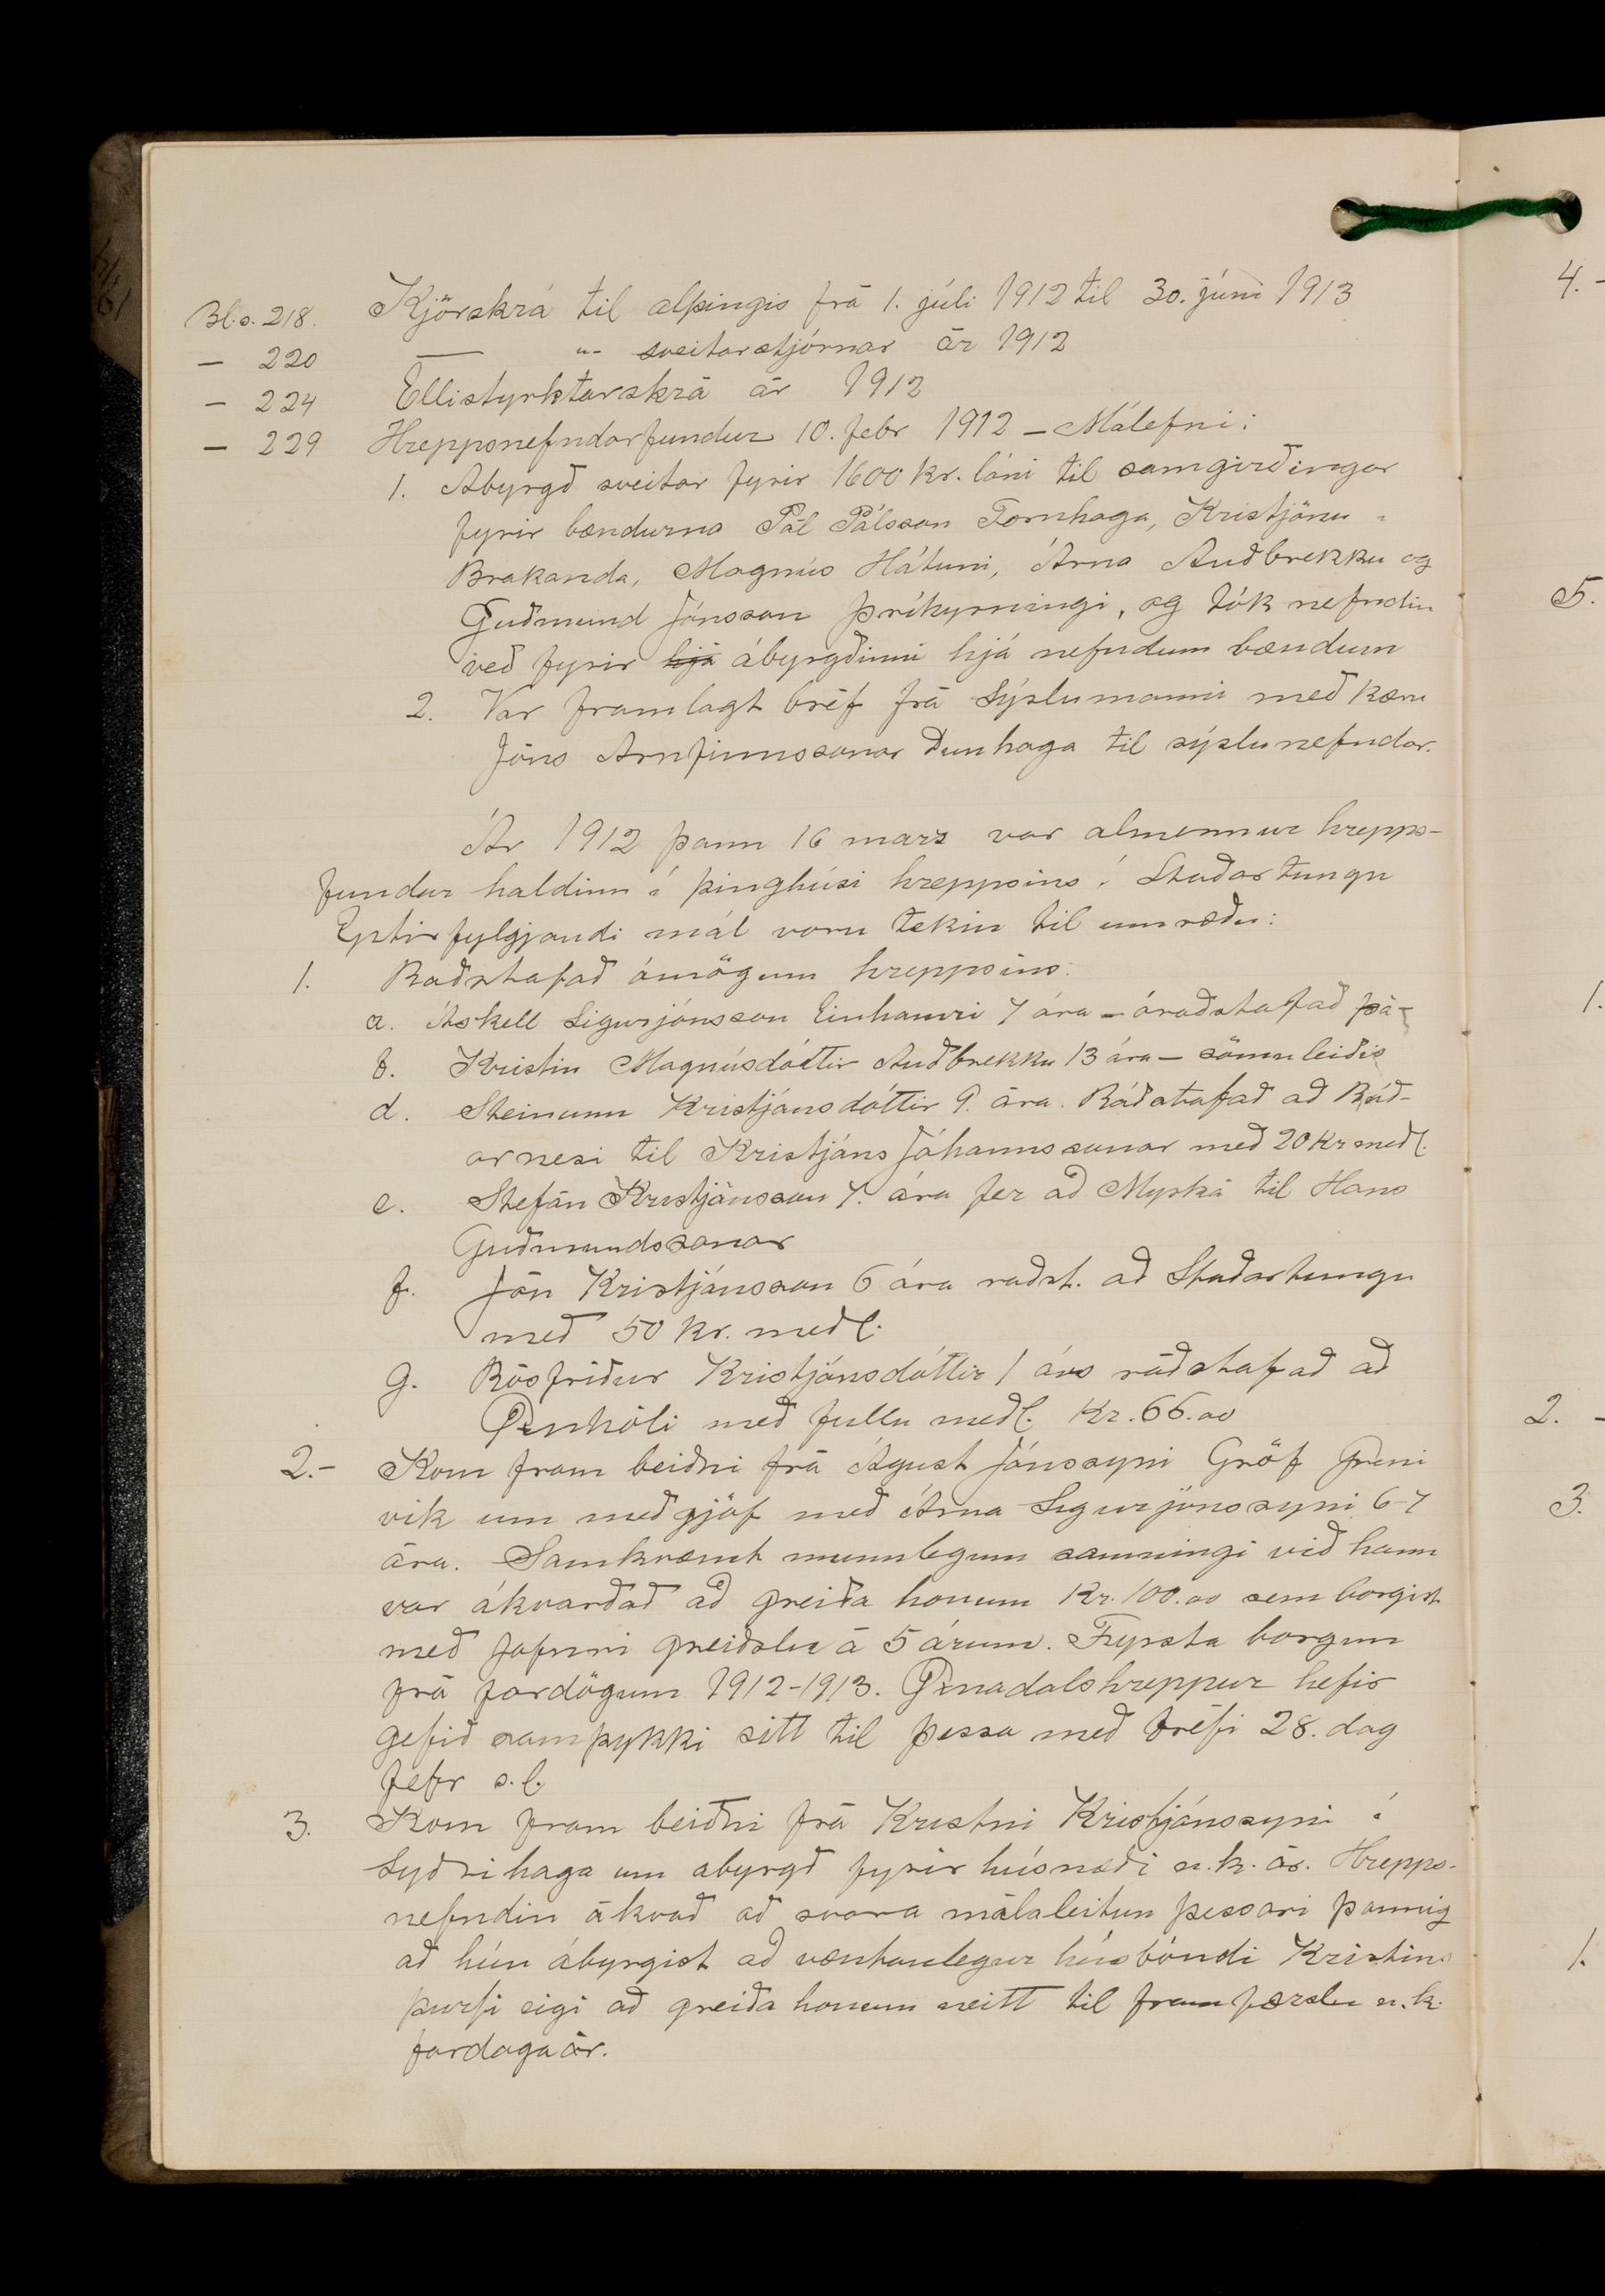 Bls. 218. Kjörskrá til alþingis frá 1. júlí 1912 til 30. júní 1913
— 220 — „- sveitarstjórnar ár 1912
— 224 Ellistyrktarskrá ár 1912
— 229 Hreppsnefndarfundur 10. febr 1912 — Málefni:
1. Abyrgð sveitar fyrir 1600 kr. láni til samgirðingar
fyrir bændurna Pál Pálsson Fornhaga, Kristjönu í
Brakanda, Magnús Hátúni, Árna Auðbrekku og
Guðmund Jónsson Þríhyrningi, og tók nefndin
veð fyrir hjá ábyrgðinni hjá nefndum bændum
2. Var framlagt bréf frá Sýslumanni með kæru
Jóns Arnfinnssonar Dunhaga til sýslunefndar.
Ár 1912 þann 16 marz var almennur hrepps-
fundur haldinn í þinghúsi hreppsins í Staðartungu
Eptirfylgjandi mál voru tekin til umræðu:
1. Raðstafað ómögum hreppsins:
a. Áskell Sigurjónsson Einhamri 7 ára — óraðstafað þá-
b. Kristin Magnúsdóttir Auðbrekku 13 ára — sömuleiðis
d. Steinunn Kristjánsdóttir 9. ára. Ráðstafað að Búð-
arnesi til Kristjáns Jóhannssonar með 20 kr meðl.
e. Stefán Kristjánsson 7. ára fer að Myrká til Hans
Guðmundssonar
f. Jón Kristjánsson 6 ára raðst. að Staðartungu
með 50 kr. meðl.
g. Rósfríður Kristjánsdóttir 1 árs ráðstafað að
Öxnhóli með fullu meðl. Kr. 66.00
2.- Kom fram beiðni frá Ágúst Jónssyni Gröf Greni
vík um meðgjöf með Árna Sigurjónssyni 6-7
ára. Samkvæmt munnlegum samningi við hann
var ákvarðað að greiða honum Kr. 100.00 sem borgist
með jafnri greiðslu á 5 árum. Fyrsta borgun
frá fardögum 1912-1913. Öxnadalshreppur hefir
gefið samþykki sitt til þessa með bréfi 28. dag
febr s.l.
3. Kom fram beiðni frá Kristni Kristjánssyni í
Syðrihaga um abyrgð fyrir húsnæði n.k. ár. Hrepps-
nefndin ákvað að svara málaleitun þessari þannig
að hún ábyrgist að væntanlegur húsbóndi Kristins
þurfi eigi að greiða honum neitt til framfærslu n.k.
fardagaár.
4. -
5.
1.
2. -
3.
1.